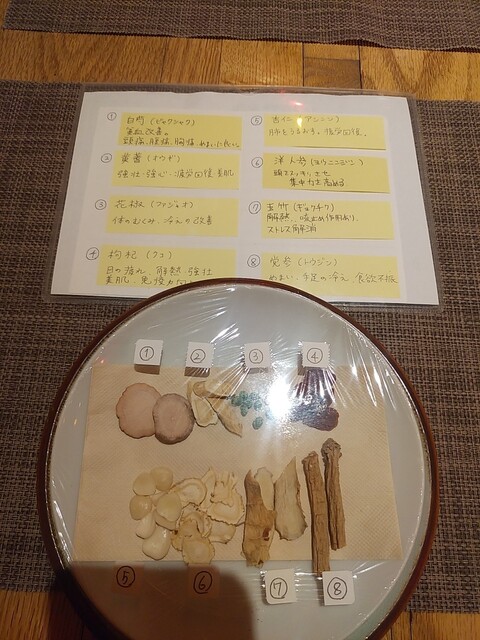 ① 白芍 (ビャクシャク)
貧血改善。
頭痛、腹痛、胸痛、めまいに良い。
② 黄耆 (オウギ)
強壮・強心・疲労回復 美肌
③ 花椒 (ファジャオ)
体のむくみ、冷えの改善
④ 枸杞 (クコ)
目の疲れ、解熱、強壮
美肌、免疫力
⑤ 杏仁 (アンニン)
肺をうるおす。疲労回復。
⑥ 洋人参 (ヨウニンジン)
頭スッキリさせ
集中力を高める
⑦ 玉竹 (ギョクチク)
解熱、咳止め作用あり。
ストレス解消
⑧ 党参 (トウジン)
めまい、手足の冷え、食欲不振
① ② ③ ④
⑤ ⑥ ⑦ ⑧